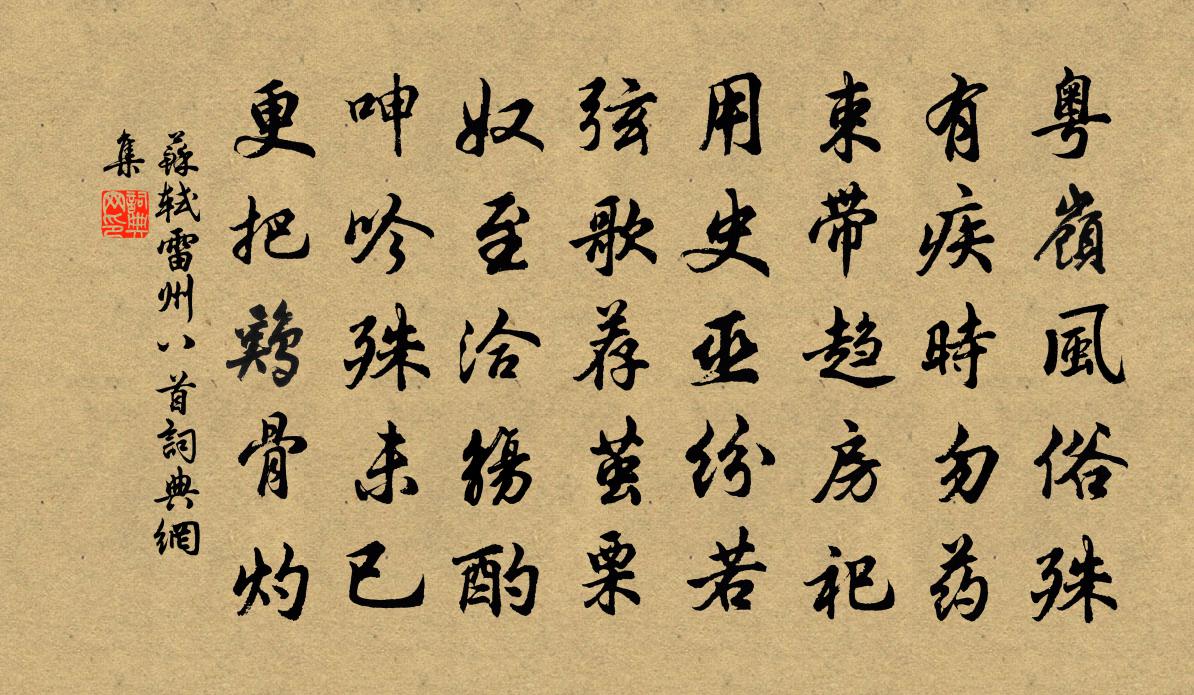 粤嶺風俗殊
有疾時勿药
束带趋房祀
用史巫纷若
弦歌荐茧栗
奴至洽觴酌
呻吟殊未已
更把鷄骨灼
蘇軾雷州八首詞典網
集
詞典网印